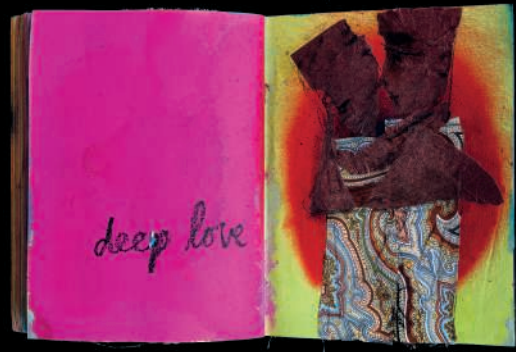 deep love